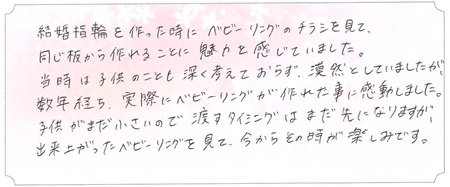 結婚指輪を作った時にベビーリングのチラシを見て、
同じ板から作れることに魅力を感じていました。
当時は子供のことも深く考えておらず、漠然としていましたが、
数年経ち、実際にベビーリングが作れた事に感動しました。
子供がまだ小さいので渡すタイミングはまだ先になりますが、
出来上がったベビーリングを見て、今からその時が楽しみです。